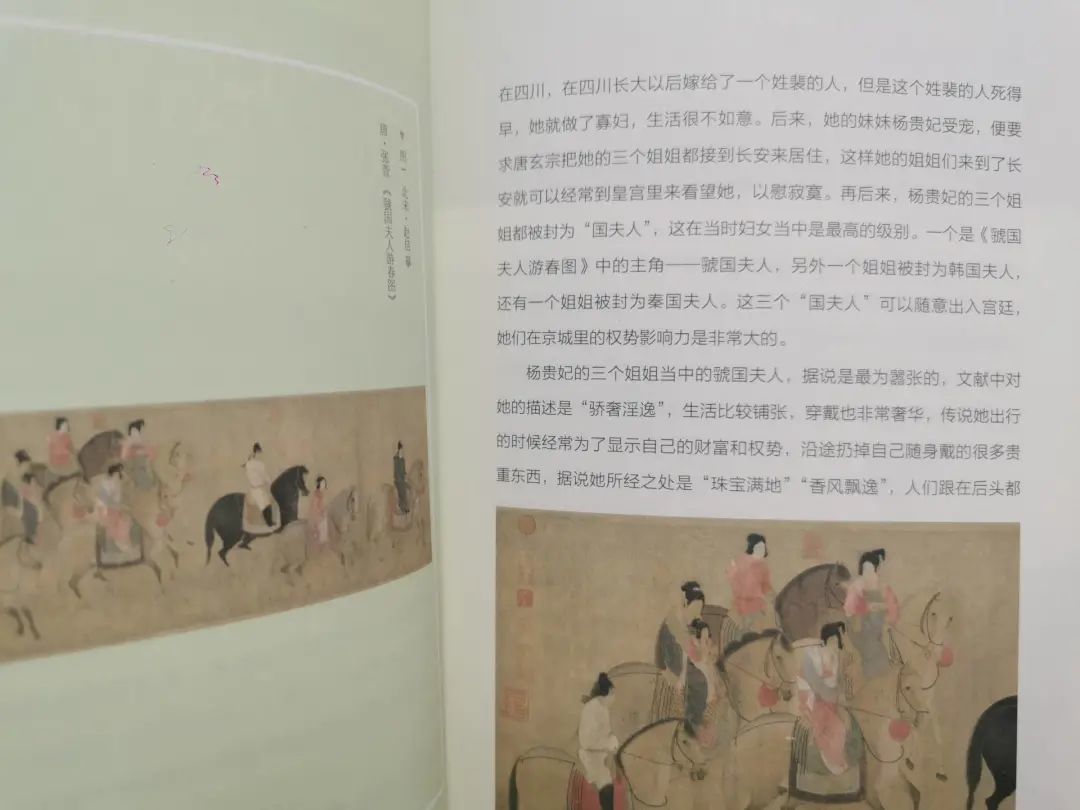 图一 北宋·赵佶 摹
唐·张萱《虢国夫人游春图》
在四川，在四川长大以后嫁给了一个姓裴的人，但是这个姓裴的人死得
早，她就做了寡妇，生活很不如意。后来，她的妹妹杨贵妃受宠，便要
求唐玄宗把她的三个姐姐都接到长安来居住，这样她的姐姐们来到了长
安就可以经常到皇宫里来看望她，以慰寂寞。再后来，杨贵妃的三个姐
姐都被封为“国夫人”，这在当时妇女当中是最高的级别。一个是《虢国
夫人游春图》中的主角——虢国夫人，另外一个姐姐被封为韩国夫人，
还有一个姐姐被封为秦国夫人。这三个“国夫人”可以随意出入宫廷，
她们在京城里的权势影响力是非常大的。
杨贵妃的三个姐姐当中的虢国夫人，据说是最为嚣张的，文献中对
她的描述是“骄奢淫逸”，生活比较铺张，穿戴也非常奢华，传说她出行
的时候经常为了显示自己的财富和权势，沿途扔掉自己随身戴的很多贵
重东西，据说她所经之处是“珠宝满地”“香风飘逸”，人们跟在后头都